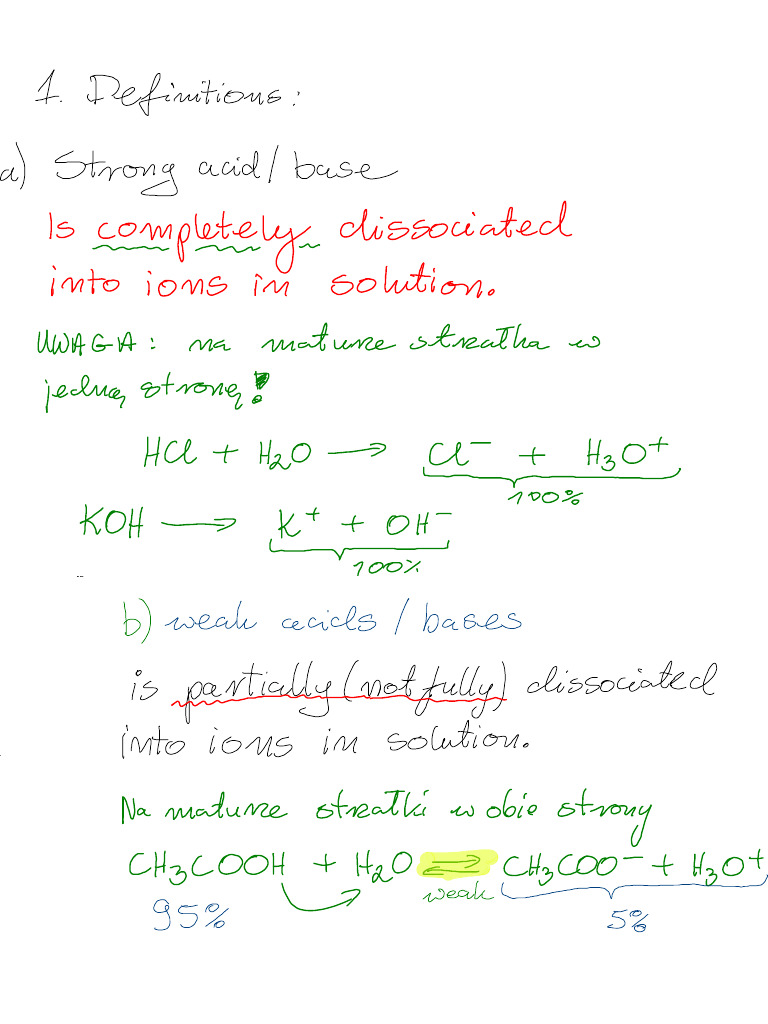 1. Definitions:
a) Strong acid/base
Is completely dissociated
into ions in solution.
UWAGA: na maturze strzałka w
jedną stronę!
HCl + H₂O ⟶ Cl⁻ + H₃O⁺
100%
KOH ⟶ K⁺ + OH⁻
100%
b) weak acids / bases
is partially (not fully) dissociated
into ions in solution.
Na maturze strzałki w obie strony
CH₃COOH + H₂O ⇌ CH₃COO⁻ + H₃O⁺
weak
95% 5%